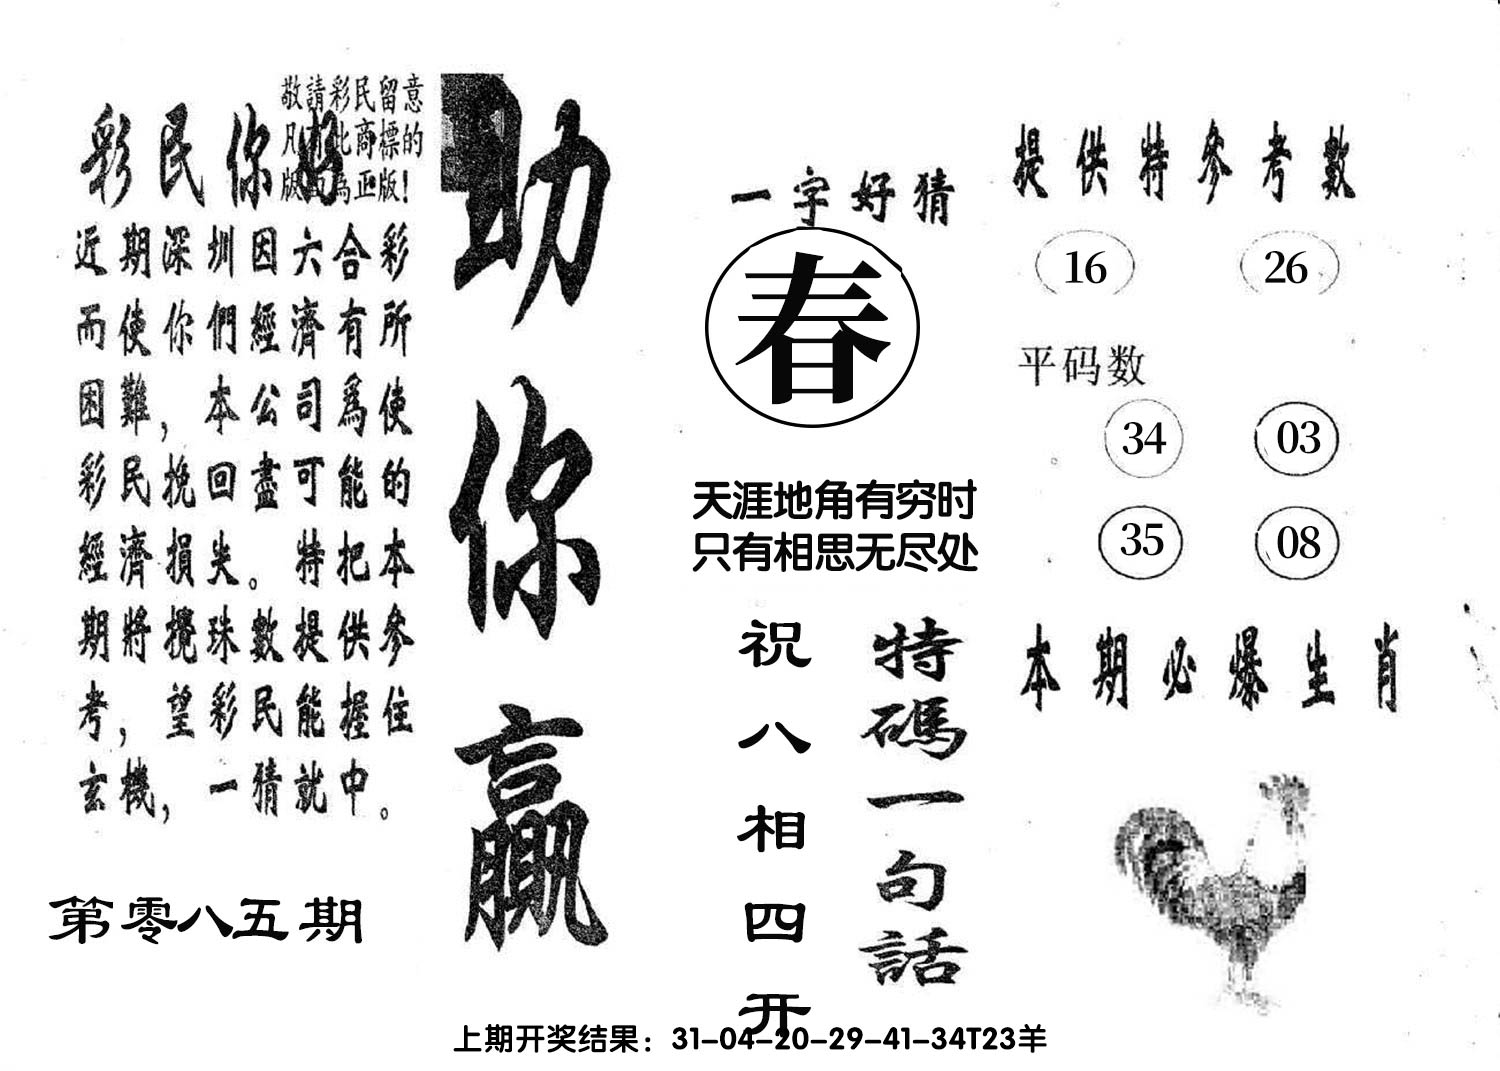 敬請彩民留意
凡有此商標的
版面為正版!
彩民你好
近期深圳因六合彩
而使你們經濟有所
困難，本公司爲使
彩民挽回盡可能的
經濟損失。特把本
期將攪珠數提供參
考，望彩民能握住
玄機，一猜就中。
第零八五期
助你贏
一字好猜
春
天涯地角有穷时
只有相思无尽处
特碼一句話
祝八相四开
提供特參考數
16 26
平码数
34 03
35 08
本期必爆生肖
上期开奖结果：31-04-20-29-41-34T23羊